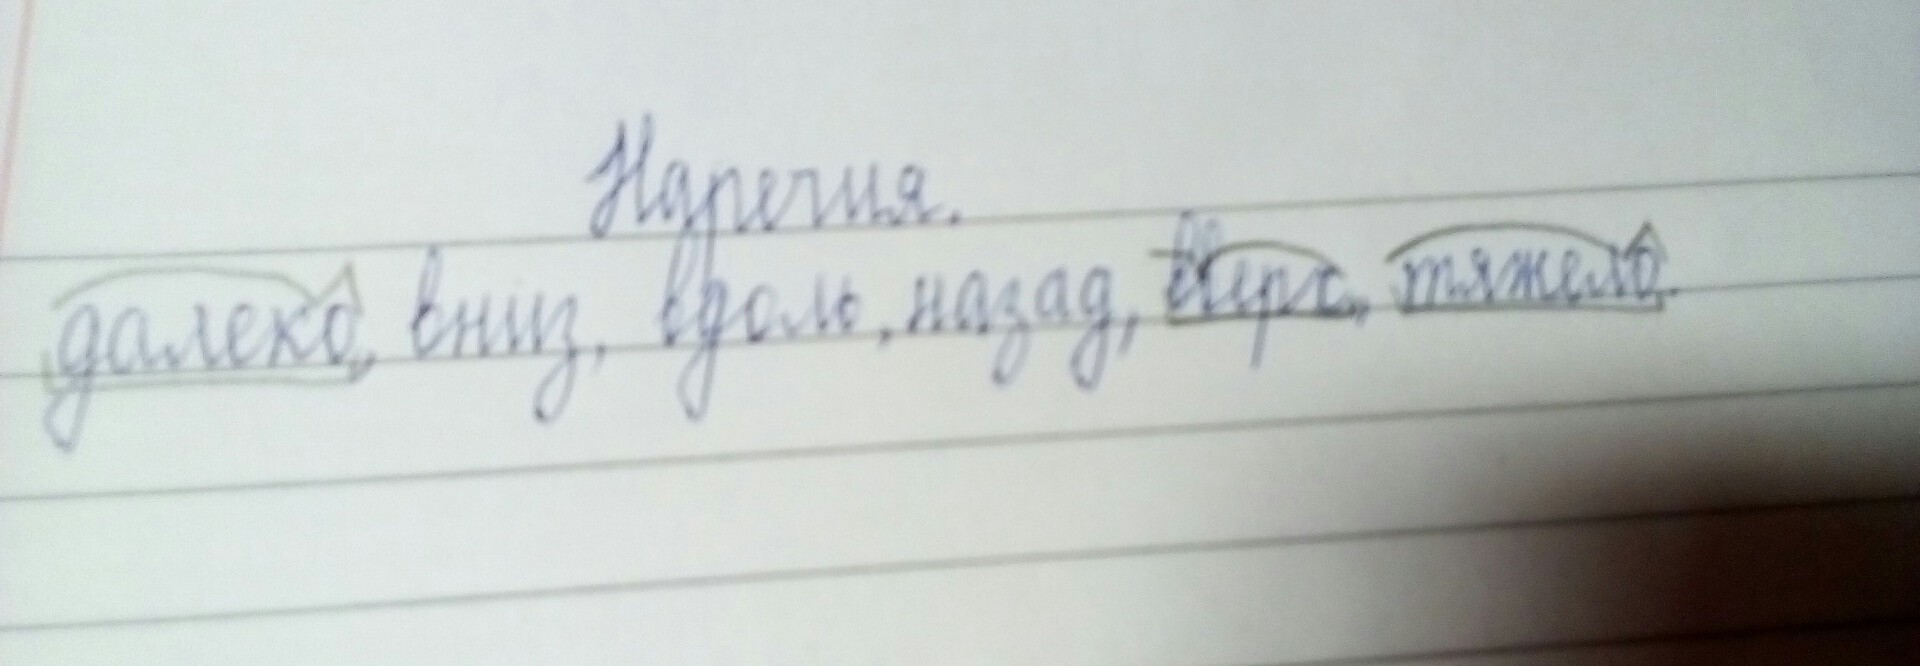 Наречия.
далеко, вниз, вдоль, назад, тяжело.